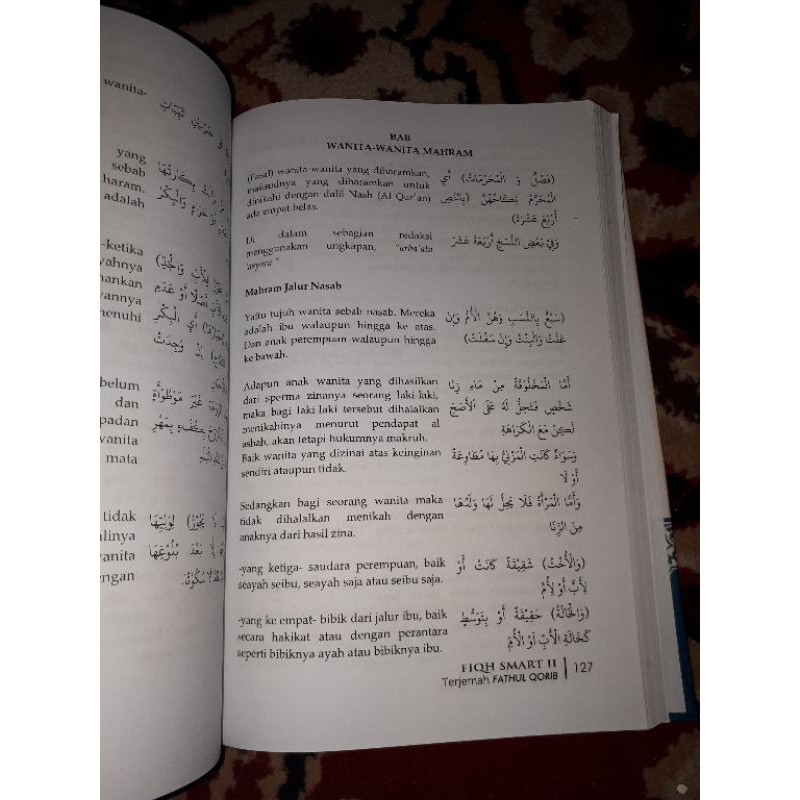 wanita-
yang
sebab
haram.
adalah
-ketika
nyannya
menuhi
belum
dan
wanita
mata
tidak
wanita
dengan
BAB
WANITA-WANITA MAHRAM
(Fasal) wanita-wanita yang diharamkan,
maksudnya yang diharamkan untuk
dinikahi dengan dalil Nash (Al Qur'an)
ada empat belas.
(فَصْلٌ وَ الْمُحَرَّمَاتُ) أَيْ
الْمُحَرَّمُ نِكَاحُهُنَّ (بِالنَّصِّ
أَرْبَعَ عَشْرَةَ)
Di dalam sebagian redaksi
menggunakan ungkapan, "arba'ata
'asyara."
وَفِيْ بَعْضِ النُّسَخِ أَرْبَعَةَ عَشَرَ
Mahram Jalur Nasab
Yaitu tujuh wanita sebab nasab. Mereka
adalah ibu walaupun hingga ke atas.
Dan anak perempuan walaupun hingga
ke bawah.
(سَبْعٌ بِالنَّسَبِ وَهُنَّ الْأُمُّ وَإِنْ
عَلَتْ وَالْبِنْتُ وَإِنْ سَفُلَتْ)
Adapun anak wanita yang dihasilkan
dari sperma zinanya seorang laki-laki,
maka bagi laki-laki tersebut dihalalkan
menikahinya menurut pendapat al
ashah, akan tetapi hukumnya makruh.
أَمَّا الْمَخْلُوْقَةُ مِنْ مَاءِ زِنَا
شَخْصٍ فَتَحِلُّ لَهُ عَلَى الْأَصَحِّ
لَكِنْ مَعَ الْكَرَاهَةِ
Baik wanita yang dizinai atas keinginan
sendiri ataupun tidak.
وَسَوَاءٌ كَانَتِ الْمَزْنِيُّ بِهَا مُطَاوِعَةً
أَوْ لَا
Sedangkan bagi seorang wanita maka
tidak dihalalkan menikah dengan
anaknya dari hasil zina.
وَأَمَّا الْمَرْأَةُ فَلَا يَحِلُّ لَهَا وَلَدُهَا
مِنَ الزِّنَا
-yang ketiga- saudara perempuan, baik
seayah seibu, seayah saja atau seibu saja.
(وَالْأُخْتُ) شَقِيْقَةً كَانَتْ أَوْ
لِأَبٍ أَوْ لِأُمٍّ
-yang ke empat- bibik dari jalur ibu, baik
secara hakikat atau dengan perantara
seperti bibiknya ayah atau bibiknya ibu.
(وَالْخَالَةُ) حَقِيْقَةً أَوْ بِتَوَسُّطٍ
كَخَالَةِ الْأَبِ أَوْ الْأُمِّ
FIQH SMART II
Terjemah FATHUL QORIB
127